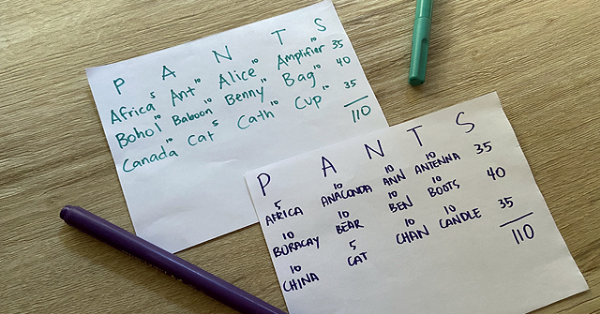 P A N T S
Africa 5 Ant 10 Alice 10 Amplifier 10 35
Bohol 10 Baboon 10 Benny 10 Bag 10 40
Canada 10 Cat 5 Cath 10 Cup 10 35
110
P A N T S
AFRICA 5 ANACONDA 10 ANN 10 ANTENNA 10 35
BORACAY 10 BEAR 10 BEN 10 BOOTS 10 40
CHINA 10 CAT 5 CHAN 10 CANDLE 10 35
110